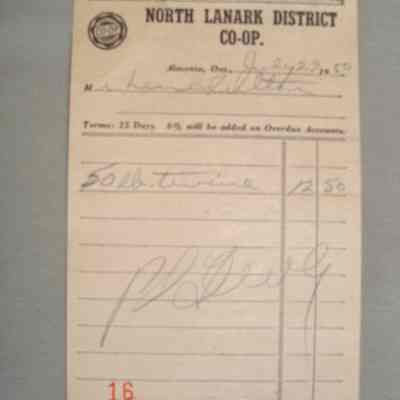 CO-OP
NORTH LANARK DISTRICT
CO-OP.
Almonte, Ont., July 29 1950
M
Terms: 25 Days. 6% will be added on Overdue Accounts.
50 lb. twine 12 50
16